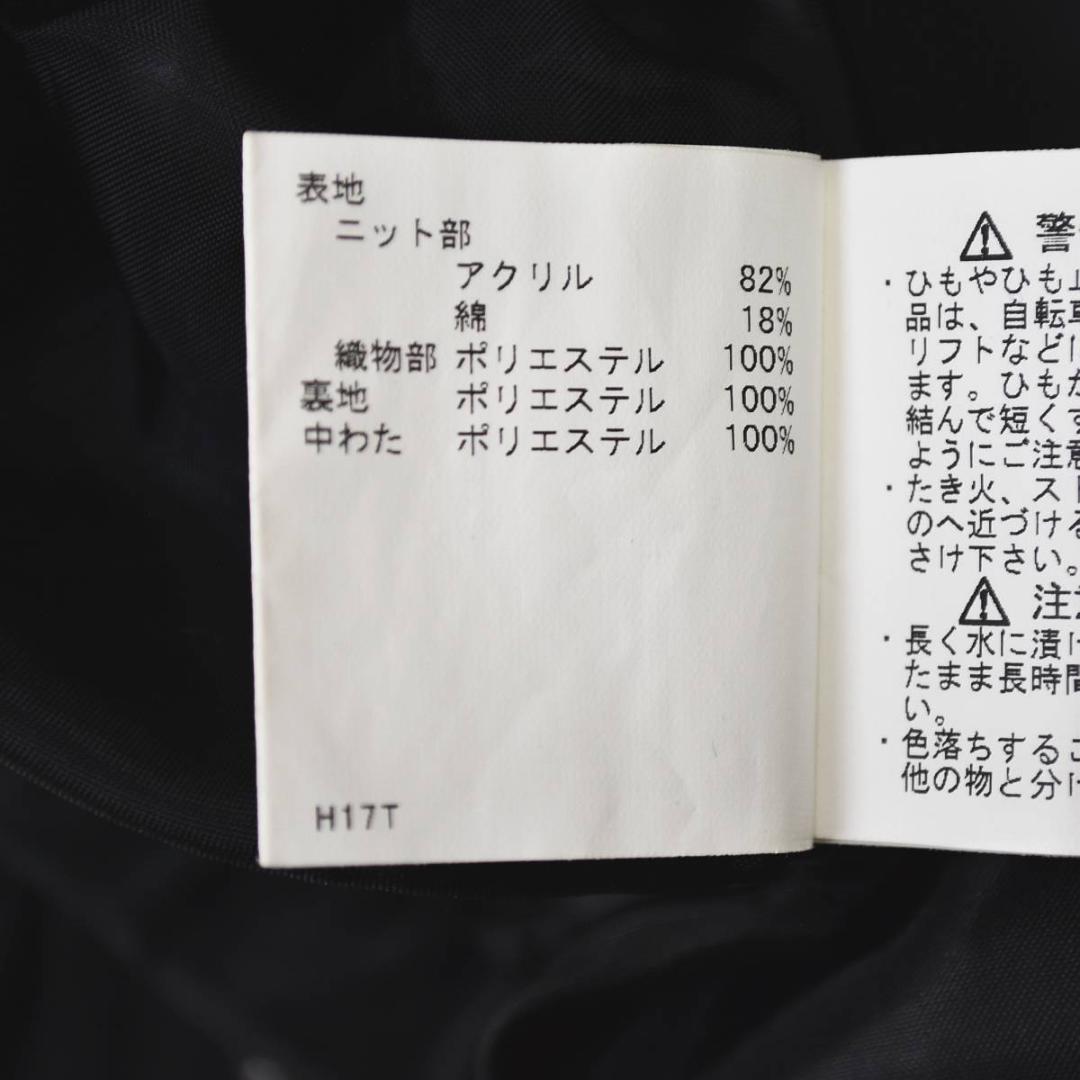 表地
ニット部
アクリル 82%
綿 18%
織物部 ポリエステル 100%
裏地 ポリエステル 100%
中わた ポリエステル 100%
H17T
警
・ひもやひも
品は、自転車
リフトなど
ます。ひもか
結んで短くす
ようにご注意
・たき火、スト
のへ近づける
さけ下さい。
注意
・長く水に漬け
たまま長時間
い。
・色落ちするこ
他の物と分け